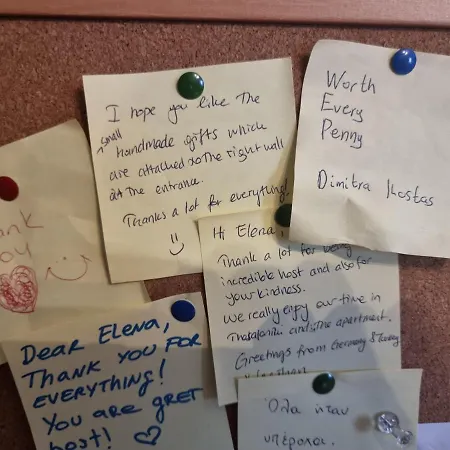 I hope you like the
small
handmade gifts which
are attached to the right wall
at the entrance.
Thanks a lot for everything!
Worth
Every
Penny
Dimitra Kostas
Hi Elena,
Thank a lot for being
incredible host and also for
your kindness.
We really enjoy our time in
and the apartment.
Greetings from Germany &
Dear Elena,
THANK YOU FOR
EVERYTHING!
You are GRET
host!
Όλα ήταν
υπέροχα.